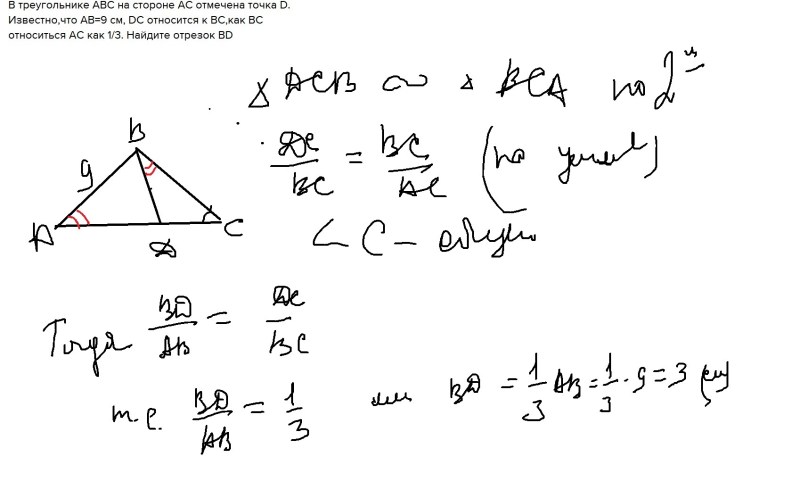 В треугольнике ABC на стороне AC отмечена точка D.
Известно,что AB=9 см, DC относится к BC,как BC
относиться AC как 1/3. Найдите отрезок BD
Δ DCB ∾ Δ BCA по 2<sup>м</sup>
DC/BC = BC/AC (по условию)
∠ C - общий
B
9
A
D
C
Тогда BD/AB = DC/BC
т.е. BD/AB = 1/3 или BD = 1/3 AB = 1/3 · 9 = 3 (см)